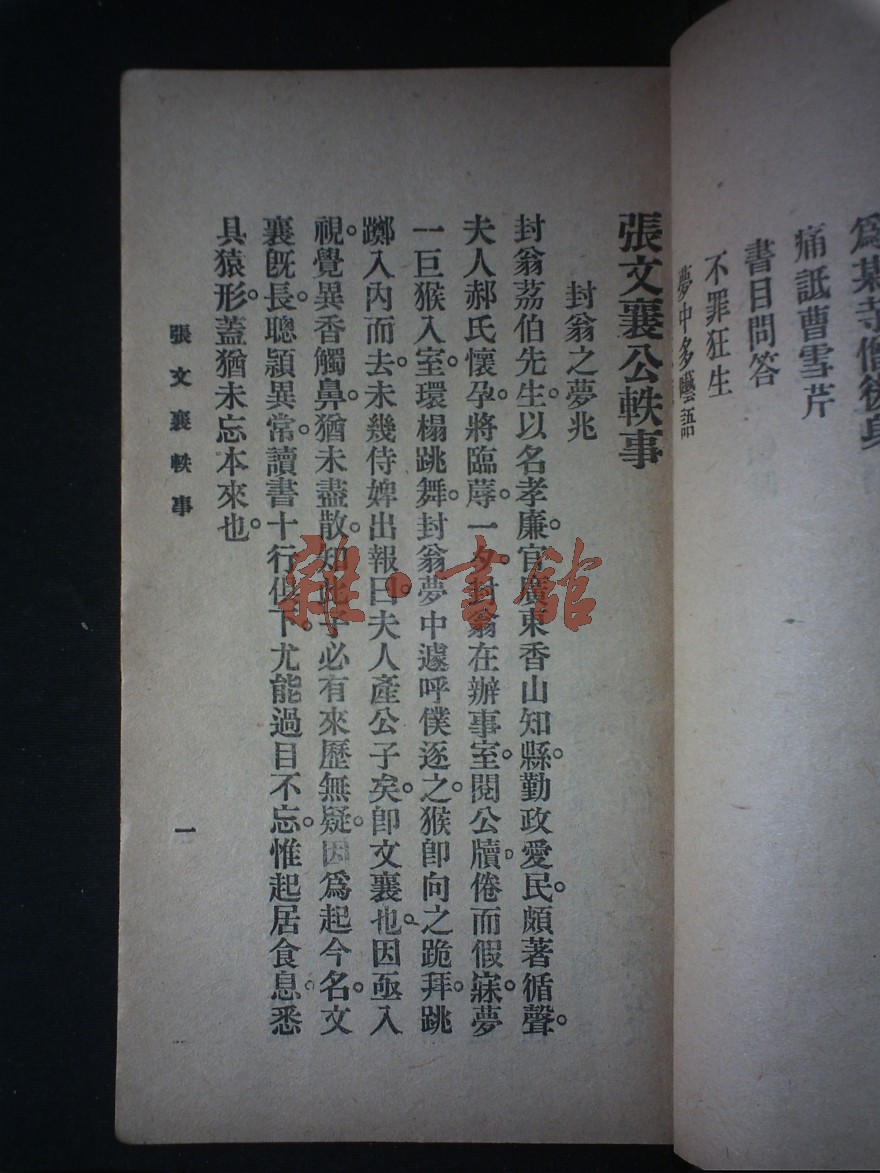 痛詆曹雪芹
書目問答
不罪狂生
夢中多囈語
張文襄公軼事
封翁之夢兆
封翁荔伯先生。以名孝廉。官廣東香山知縣。勤政愛民。頗著循聲。
夫人郝氏懷孕。將臨蓐。一夕。封翁在辦事室。閱公牘。倦而假寐。夢
一巨猴入室。環榻跳舞。封翁夢中遽呼僕逐之。猴卽向之跪拜。跳
躑入內而去。未幾侍婢出報曰。夫人產公子矣。卽文襄也。因亟入
視。覺異香觸鼻。猶未盡散。知此子必有來歷無疑。因爲起今名。文
襄旣長。聰穎異常。讀書十行俱下。尤能過目不忘。惟起居食息。悉
具猿形。蓋猶未忘本來也。
張文襄軼事
一
雜·書館